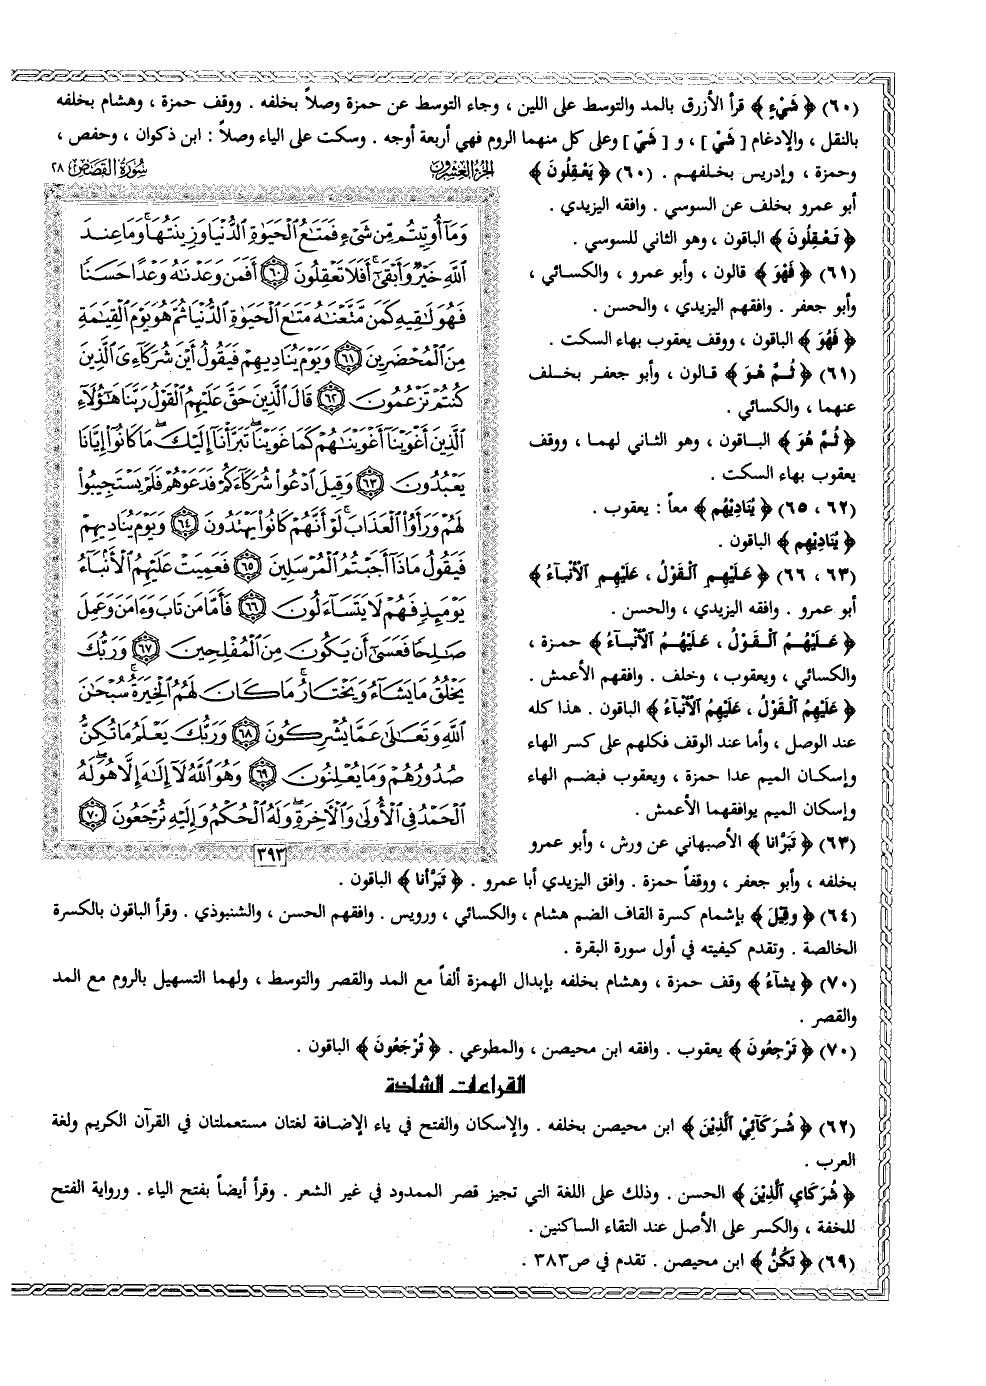 (٦٠) ﴿ شَيْءٍ ﴾ قرأ الأزرق بالمد والتوسط على اللين ، وجاء التوسط عن حمزة وصلاً بخلفه . ووقف حمزة ، وهشام بخلفه
بالنقل ، والإدغام [ شَيْ ] ، و [ شَيّ ] وعلى كل منهما الروم فهي أربعة أوجه . وسكت على الياء وصلاً : ابن ذكوان ، وحفص ،
وحمزة ، وإدريس بخلفهم . (٦٠) ﴿ يَعْقِلُونَ ﴾
أبو عمرو بخلف عن السوسي . وافقه اليزيدي .
﴿ تَعْقِلُونَ ﴾ الباقون ، وهو الثاني للسوسي .
(٦١) ﴿ فَهْوَ ﴾ قالون ، وأبو عمرو ، والكسائي ،
وأبو جعفر . وافقهم اليزيدي ، والحسن .
﴿ فَهُوَ ﴾ الباقون ، ووقف يعقوب بهاء السكت .
(٦١) ﴿ ثُمَّ هْوَ ﴾ قالون ، وأبو جعفر بخلف
عنهما ، والكسائي .
﴿ ثُمَّ هُوَ ﴾ الباقون ، وهو الثاني لهما ، ووقف
يعقوب بهاء السكت .
(٦٢ ، ٦٥) ﴿ يُنَادِيْهُم ﴾ معاً : يعقوب .
﴿ يُنَادِيْهِم ﴾ الباقون .
(٦٣ ، ٦٦) ﴿ عَلَيْهِمِ ٱلْقَوْلُ ، عَلَيْهِمِ ٱلْأَنْبَآءُ ﴾
أبو عمرو . وافقه اليزيدي ، والحسن .
﴿ عَلَيْهُمُ ٱلْقَوْلُ ، عَلَيْهُمُ ٱلْأَنْبَآءُ ﴾ حمزة ،
والكسائي ، ويعقوب ، وخلف . وافقهم الأعمش .
﴿ عَلَيْهِمُ ٱلْقَوْلُ ، عَلَيْهِمُ ٱلْأَنْبَآءُ ﴾ الباقون . هذا كله
عند الوصل ، وأما عند الوقف فكلهم على كسر الهاء
وإسكان الميم عدا حمزة ، ويعقوب فبضم الهاء
وإسكان الميم يوافقهما الأعمش .
(٦٣) ﴿ تَبَرَّانا ﴾ الأصبهاني عن ورش ، وأبو عمرو
الجزء العشرون
سورة القصص ٢٨
وَمَآ أُوتِيتُم مِّن شَىْءٍ فَمَتَٰعُ ٱلْحَيَوٰةِ ٱلدُّنْيَا وَزِينَتُهَا ۚ وَمَا عِندَ
ٱللَّهِ خَيْرٌ وَأَبْقَىٰٓ ۚ أَفَلَا تَعْقِلُونَ ٦٠ أَفَمَن وَعَدْنَٰهُ وَعْدًا حَسَنًا
فَهُوَ لَٰقِيهِ كَمَن مَّتَّعْنَٰهُ مَتَٰعَ ٱلْحَيَوٰةِ ٱلدُّنْيَا ثُمَّ هُوَ يَوْمَ ٱلْقِيَٰمَةِ
مِنَ ٱلْمُحْضَرِينَ ٦١ وَيَوْمَ يُنَادِيهِمْ فَيَقُولُ أَيْنَ شُرَكَآءِىَ ٱلَّذِينَ
كُنتُمْ تَزْعُمُونَ ٦٢ قَالَ ٱلَّذِينَ حَقَّ عَلَيْهِمُ ٱلْقَوْلُ رَبَّنَا هَٰٓؤُلَآءِ
ٱلَّذِينَ أَغْوَيْنَآ أَغْوَيْنَٰهُمْ كَمَا غَوَيْنَا ۖ تَبَرَّأْنَآ إِلَيْكَ ۖ مَا كَانُوٓا۟ إِيَّانَا
يَعْبُدُونَ ٦٣ وَقِيلَ ٱدْعُوا۟ شُرَكَآءَكُمْ فَدَعَوْهُمْ فَلَمْ يَسْتَجِيبُوا۟
لَهُمْ وَرَأَوُا۟ ٱلْعَذَابَ ۚ لَوْ أَنَّهُمْ كَانُوا۟ يَهْتَدُونَ ٦٤ وَيَوْمَ يُنَادِيهِمْ
فَيَقُولُ مَاذَآ أَجَبْتُمُ ٱلْمُرْسَلِينَ ٦٥ فَعَمِيَتْ عَلَيْهِمُ ٱلْأَنۢبَآءُ
يَوْمَئِذٍ فَهُمْ لَا يَتَسَآءَلُونَ ٦٦ فَأَمَّا مَن تَابَ وَءَامَنَ وَعَمِلَ
صَٰلِحًا فَعَسَىٰٓ أَن يَكُونَ مِنَ ٱلْمُفْلِحِينَ ٦٧ وَرَبُّكَ
يَخْلُقُ مَا يَشَآءُ وَيَخْتَارُ ۗ مَا كَانَ لَهُمُ ٱلْخِيَرَةُ ۚ سُبْحَٰنَ
ٱللَّهِ وَتَعَٰلَىٰ عَمَّا يُشْرِكُونَ ٦٨ وَرَبُّكَ يَعْلَمُ مَا تُكِنُّ
صُدُورُهُمْ وَمَا يُعْلِنُونَ ٦٩ وَهُوَ ٱللَّهُ لَآ إِلَٰهَ إِلَّا هُوَ ۖ لَهُ
ٱلْحَمْدُ فِى ٱلْأُولَىٰ وَٱلْءَاخِرَةِ ۖ وَلَهُ ٱلْحُكْمُ وَإِلَيْهِ تُرْجَعُونَ ٧٠
٣٩٣
بخلفه ، وأبو جعفر ، ووقفاً حمزة . وافق اليزيدي أبا عمرو . ﴿ تَبَرَّأنا ﴾ الباقون .
(٦٤) ﴿ وقِيْلَ ﴾ بإشمام كسرة القاف الضم هشام ، والكسائي ، ورويس . وافقهم الحسن ، والشنبوذي . وقرأ الباقون بالكسرة
الخالصة . وتقدم كيفيته في أول سورة البقرة .
(٧٠) ﴿ يشآءُ ﴾ وقف حمزة ، وهشام بخلفه بإبدال الهمزة ألفاً مع المد والقصر والتوسط ، ولهما التسهيل بالروم مع المد
والقصر .
(٧٠) ﴿ تَرْجِعُونَ ﴾ يعقوب . وافقه ابن محيصن ، والمطوعي . ﴿ تُرْجَعُونَ ﴾ الباقون .
القراءات الشاذة
(٦٢) ﴿ شُرَكَآئِيْ ٱلَّذِيْنَ ﴾ ابن محيصن بخلفه . والإسكان والفتح في ياء الإضافة لغتان مستعملتان في القرآن الكريم ولغة
العرب .
﴿ شُرَكَايِ ٱلَّذِيْنَ ﴾ الحسن . وذلك على اللغة التي تجيز قصر الممدود في غير الشعر . وقرأ أيضاً بفتح الياء . ورواية الفتح
للخفة ، والكسر على الأصل عند التقاء الساكنين .
(٦٩) ﴿ تَكُنُّ ﴾ ابن محيصن . تقدم في ص٣٨٣ .